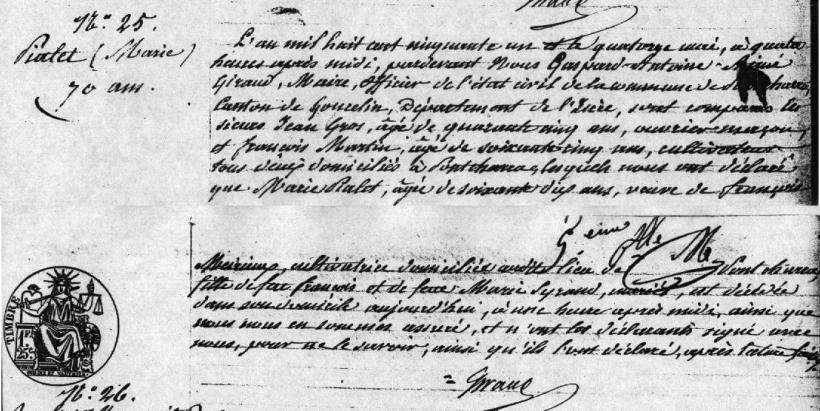 Giraud
N.º 25.
Pialat (Marie)
70 ans.
L'an mil huit cent cinquante un et le quatorze mai, à quatre
heures après midi, pardevant Nous Gaspard-Antoine-
Giraud, Maire, officier de l'état civil de la commune de Pontcharra,
Canton de Goncelin, Département de l'Isère, sont comparus les
sieurs Jean Gros, âgé de quarante cinq ans, ouvrier maçon,
et françois Martin, âgé de soixante cinq ans, cultivateur
tous deux domiciliés à Pontcharra, lesquels nous ont déclaré
que Marie Pialat, âgée de soixante dix ans, veuve de françois
5eme
cultivatrice domiciliée audit lieu de Pontcharra,
fille de feu françois et de feue Marie mariés, est décédée
dans son domicile aujourd'hui, à une heure après midi, ainsi que
nous nous en sommes assuré, et n'ont les déclarants signé avec
nous, pour ne le savoir, ainsi qu'ils l'ont déclaré, après lecture faite
= Giraud
TIMBRE
N.º 26.